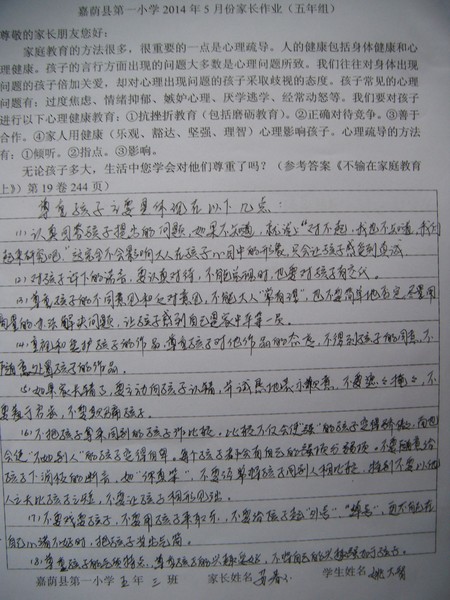 嘉荫县第一小学 2014 年 5 月份家长作业（五年组）
尊敬的家长朋友您好：
家庭教育的方法很多，很重要的一点是心理疏导。人的健康包括身体健康和心
理健康。孩子的言行方面出现的问题大多数是心理问题所致。我们往往对身体出现
问题的孩子倍加关爱，却对心理出现问题的孩子采取歧视的态度。孩子常见的心理
问题有：过度焦虑、情绪抑郁、嫉妒心理、厌学逃学、经常动怒等。我们要对孩子
进行以下心理健康教育：①抗挫折教育（包括磨砺教育）。②正确对待竞争。③善于
合作。④家人用健康（乐观、豁达、坚强、理智）心理影响孩子。心理疏导的方法
有：①倾听。②指点。③影响。
无论孩子多大，生活中您学会对他们尊重了吗？（参考答案《不输在家庭教育
上》）第 19 卷 244 页）
尊重孩子主要具体现在以下几点：
(1) 认真回答孩子提出的问题，如果不知道，就说："对不起，我也不知道，我们
一起来研究吧。"这完全不会影响大人在孩子心目中的形象，只会让孩子感受到真诚。
(2) 对孩子许下的诺言，要认真对待，不能实现时，也要对孩子有交代。
(3) 尊重孩子的不同意见和反对意见，不能大人"常有理"，也不要简单地否定，不要用
粗暴的方法解决问题，让孩子感到自己是家中平等一员。
(4) 重视和爱护孩子的作品，尊重孩子对他作品的态度，不得到孩子的同意，不
随意处置孩子的作品。
(5) 如果家长错了，要主动向孩子认错，并诚恳地表示歉意，不要遮遮掩掩，不
要羞于启齿，不要敷衍孩子。
(6) 不把孩子拿来同别的孩子作比较。比较不仅会使"强"的孩子变得骄傲，而且
会使"不如别人"的孩子变得自卑，每个孩子都会有自己的强项或弱项。不要随意给
孩子下消极的断言，如"你真笨"，不要话里将孩子同别人相比较，特别不要以他
人之长比孩子之短，不要让孩子相形见绌。
(7) 不要戏耍孩子，不要用孩子来取乐，不要给孩子起"外号""绰号"，更不能在
自己心情不好时，把孩子当出气筒。
(8) 尊重孩子的个性特点，尊重孩子的兴趣爱好，不将自己的兴趣强加于孩子。
嘉荫县第一小学 五 年 三 班 家长姓名 学生姓名